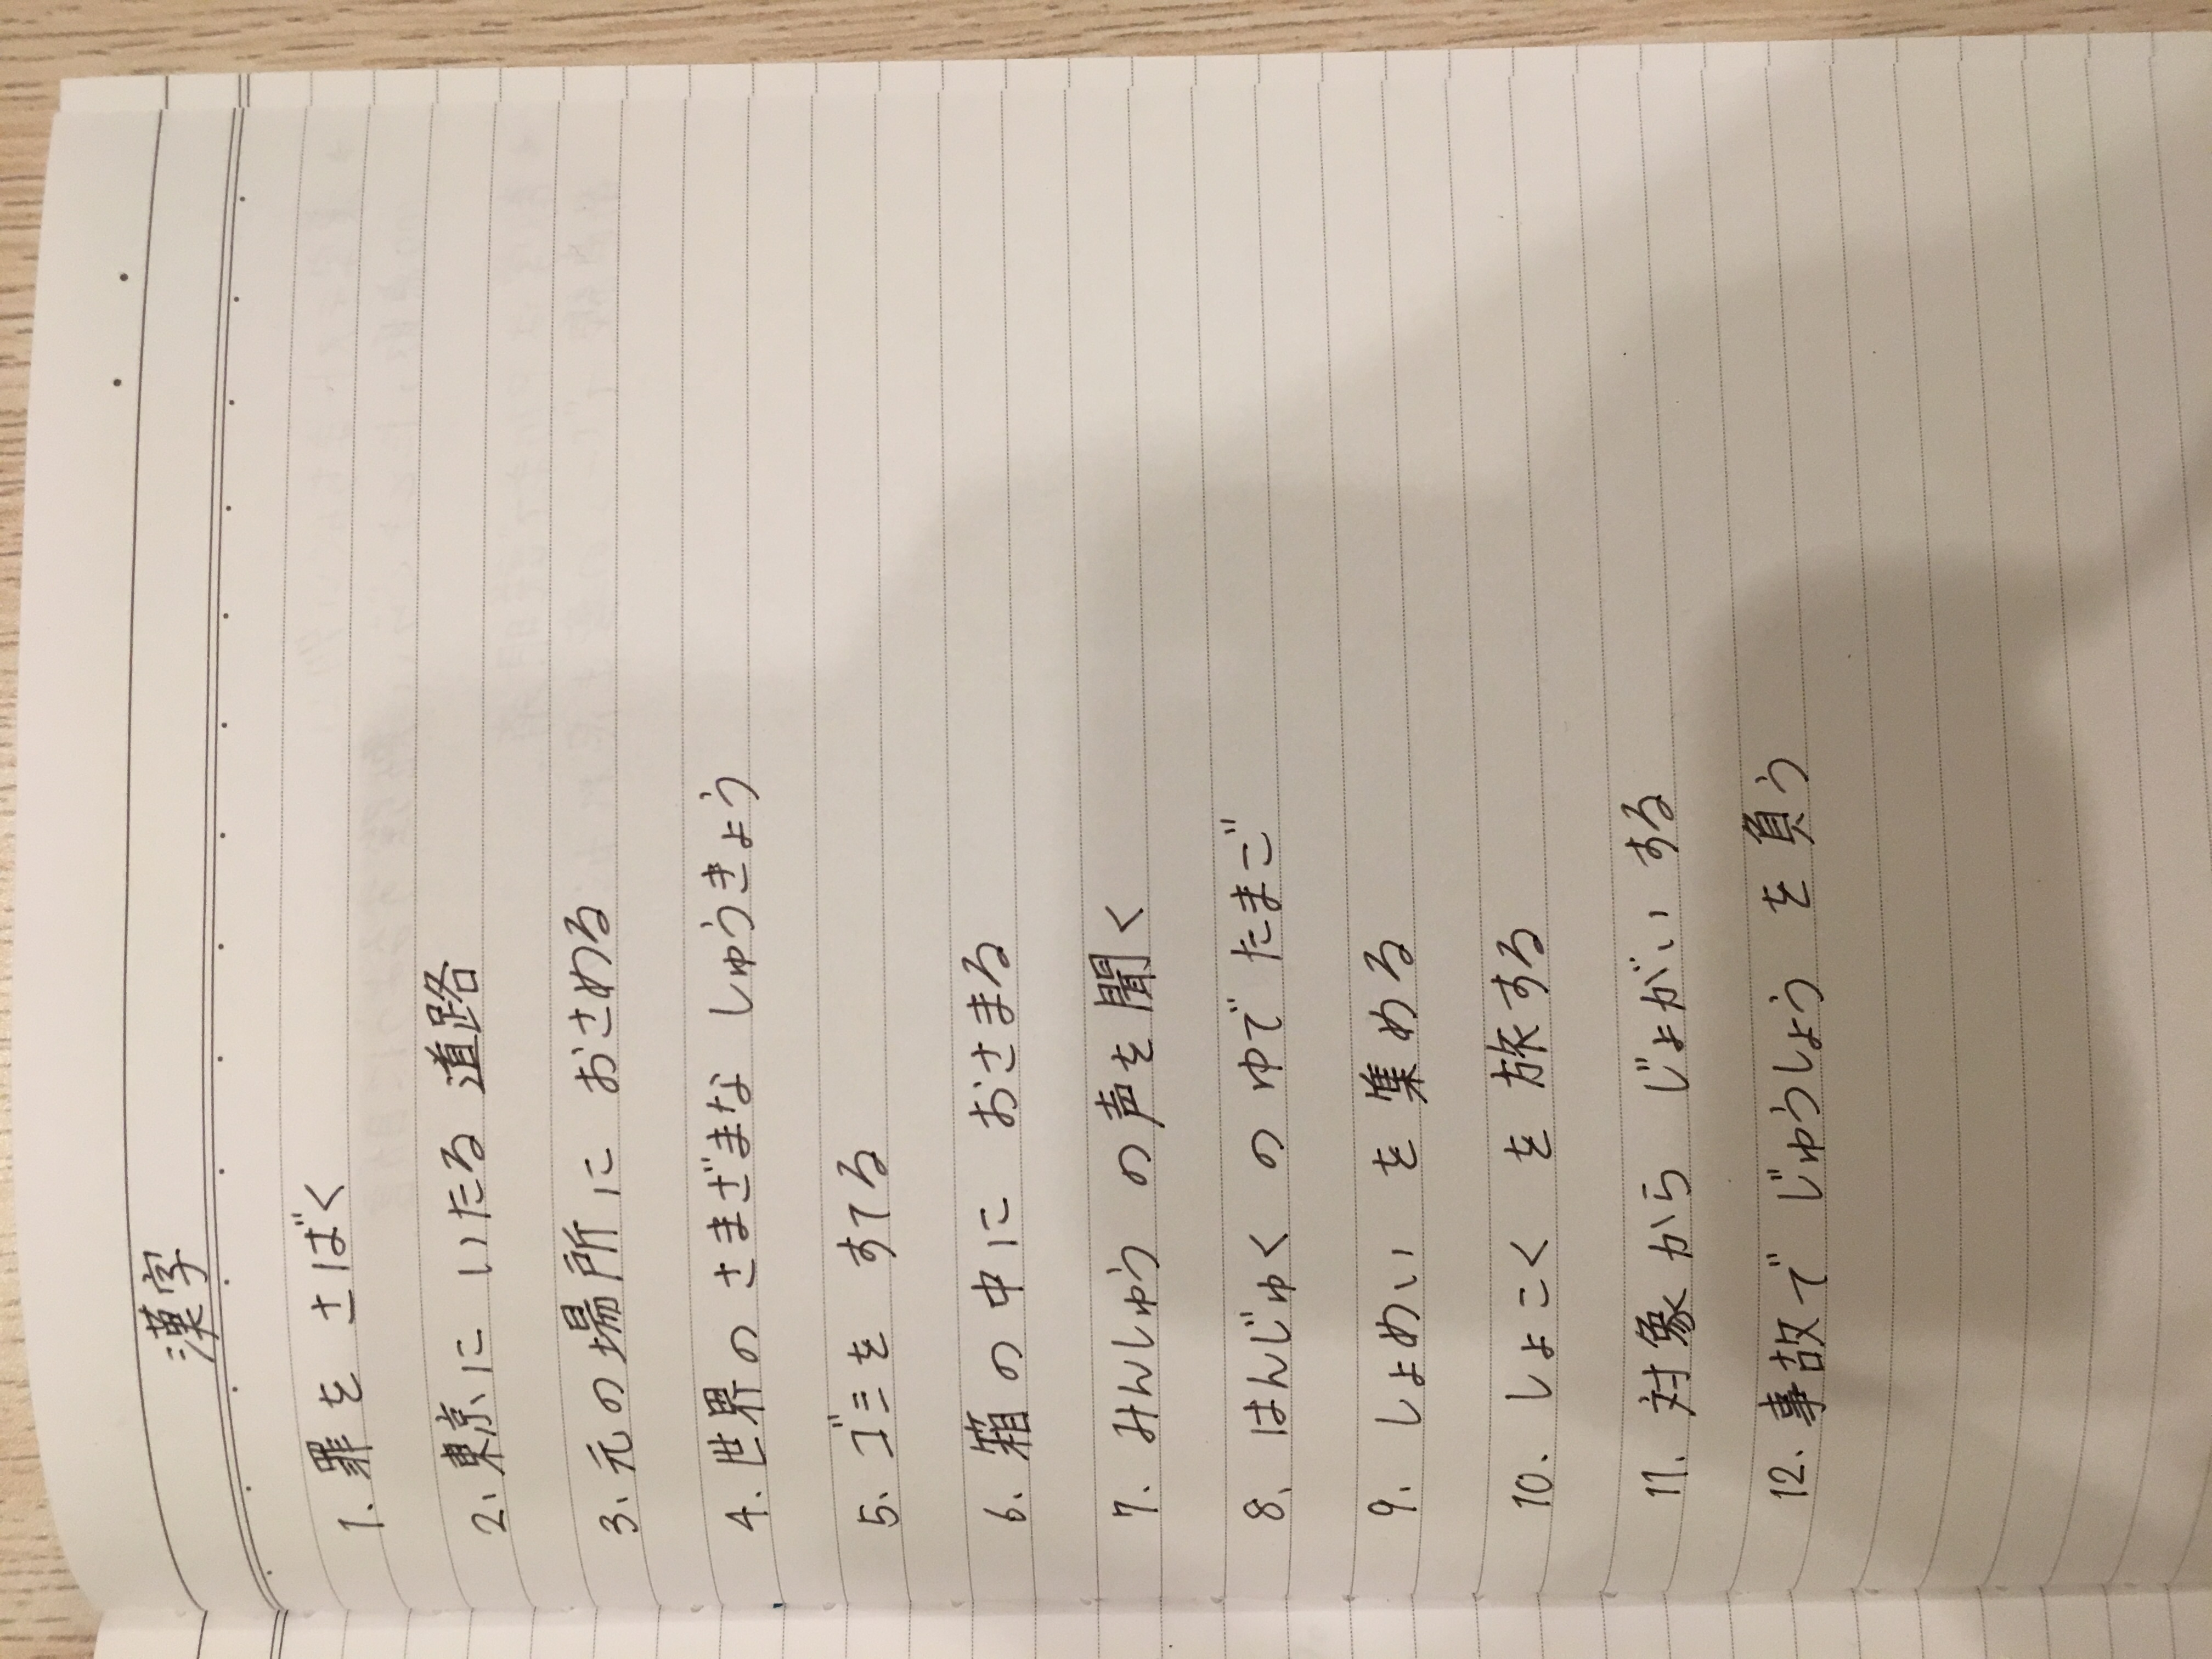 漢字
1. 罪を さばく
2. 東京に いたる 道路
3. 元の場所に おさめる
4. 世界の さまざまな しゅうきょう
5. ゴミを すてる
6. 箱の中に おさまる
7. みんしゅう の声を聞く
8. はんじゅく の ゆで たまご
9. しょめい を 集める
10. しょこく を 旅する
11. 対象から じょがい する
12. 事故で じゅうしょう を 負う